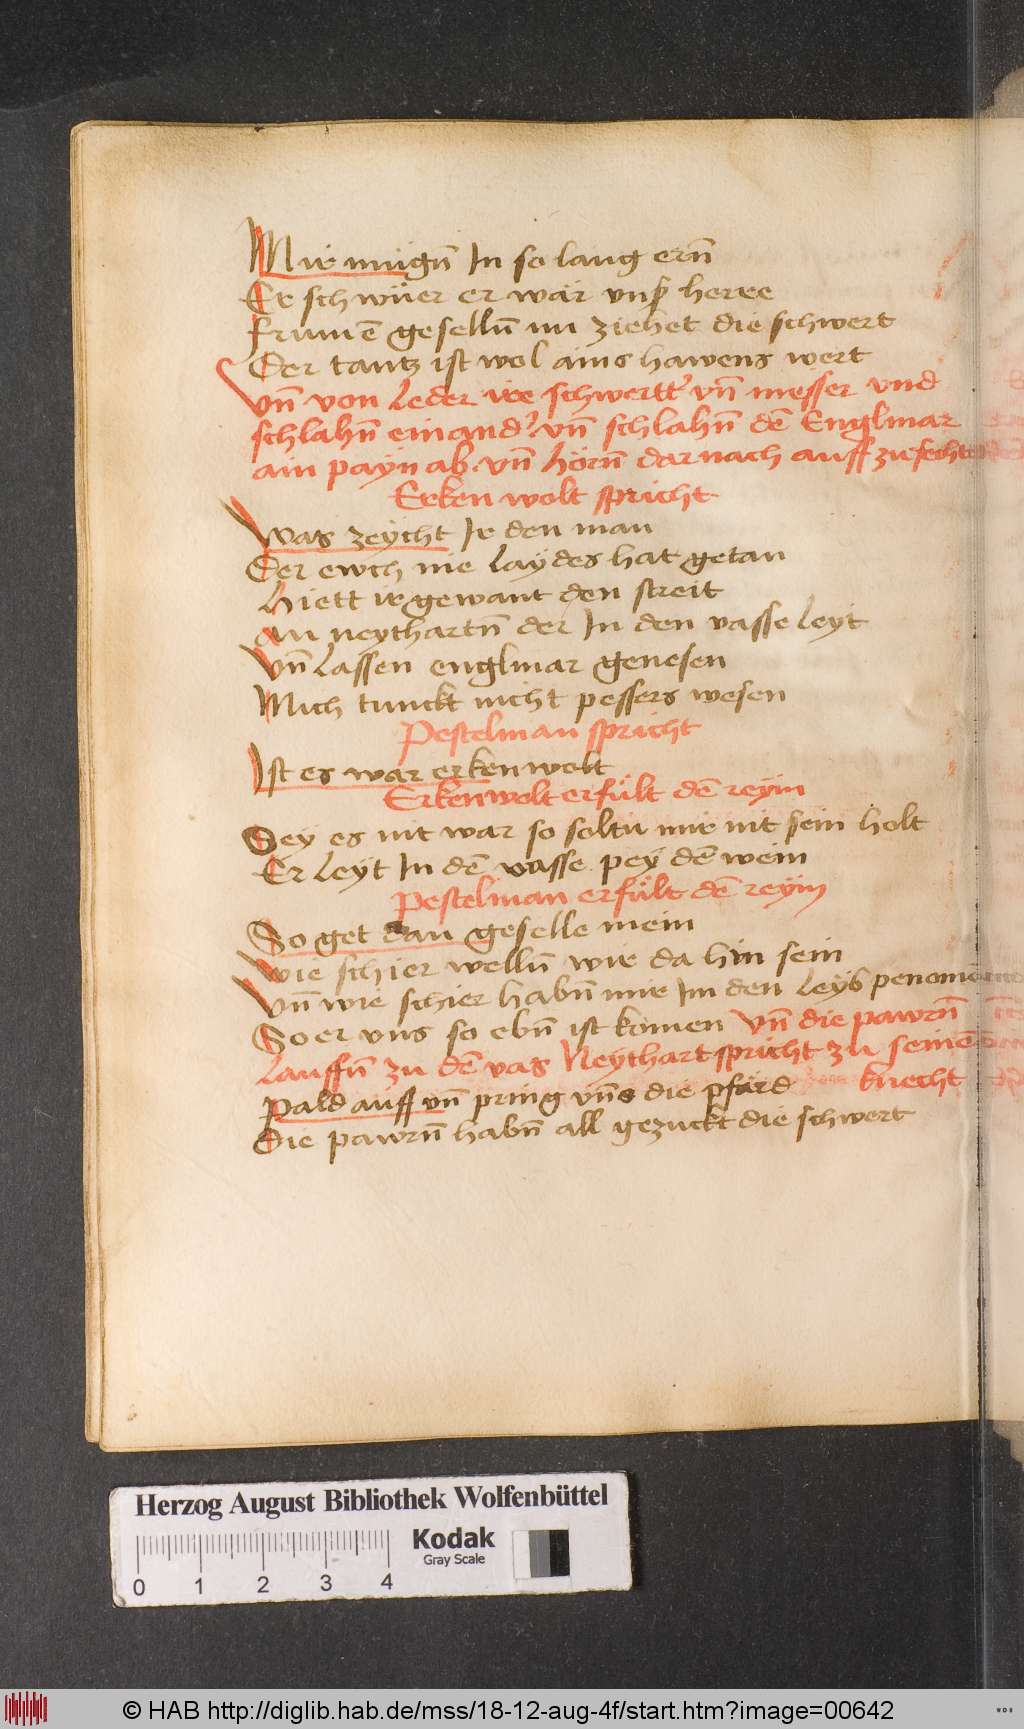 Mir mügn̄ In so lang ern̄
Er schwüer er wär vnß herre
frumē geselln̄ nu ziehet die schwert
Der tantz ist wol ains hawens wert
Vn̄ von Leder ire schwertt vn̄ messer vnd
schlahn̄ einand' vn̄ schlahn̄ dē Englmar
ain payn ab vn̄ hörn̄ darnach auff zu fechten
Erken wolt spricht
Was zeycht Ir den man
Der ewch nie Laydes hat getan
Hiett ir gewant den streit
An neythartn̄ der In den vasse Leyt
Vn̄ Lassen englmar genesen
Mich tunckt nicht pessers wesen
Pestelman spricht
Ist es war erkenwolt
Erkenwolt erfült dē reym
Sey es nit war so soltu mir nit sein holt
Er Leyt In dē vasse pey dē wein
Pestelman erfült dē reym
So get dan geselle mein
Wie schier welln̄ wir da hin sein
Vn̄ wie schier habn̄ mir Im den Leyb
So er vns so ebn̄ ist komen Vn̄ die pawrn̄
Lauffn̄ zu dē vas Neythart spricht zu seinē
knecht
Pald auff vn̄ pring vn̄s die pfärd
Die pawrn̄ habn̄ all gezuckt die schwert
Herzog August Bibliothek Wolfenbüttel
Kodak
Gray Scale
0 1 2 3 4
© HAB http://diglib.hab.de/mss/18-12-aug-4f/start.htm?image=00642